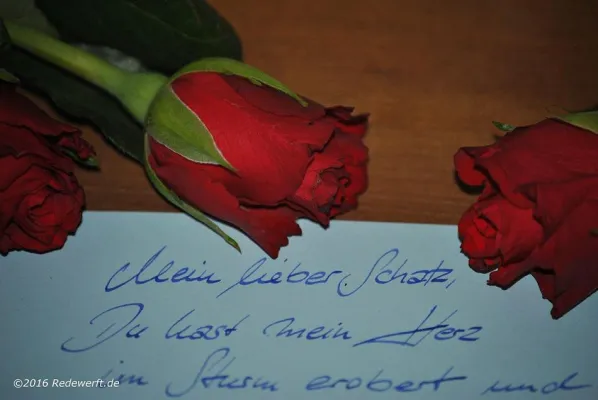 Mein lieber Schatz,
Du hast mein Herz
im Sturm erobert und
©2016 Redewerft.de